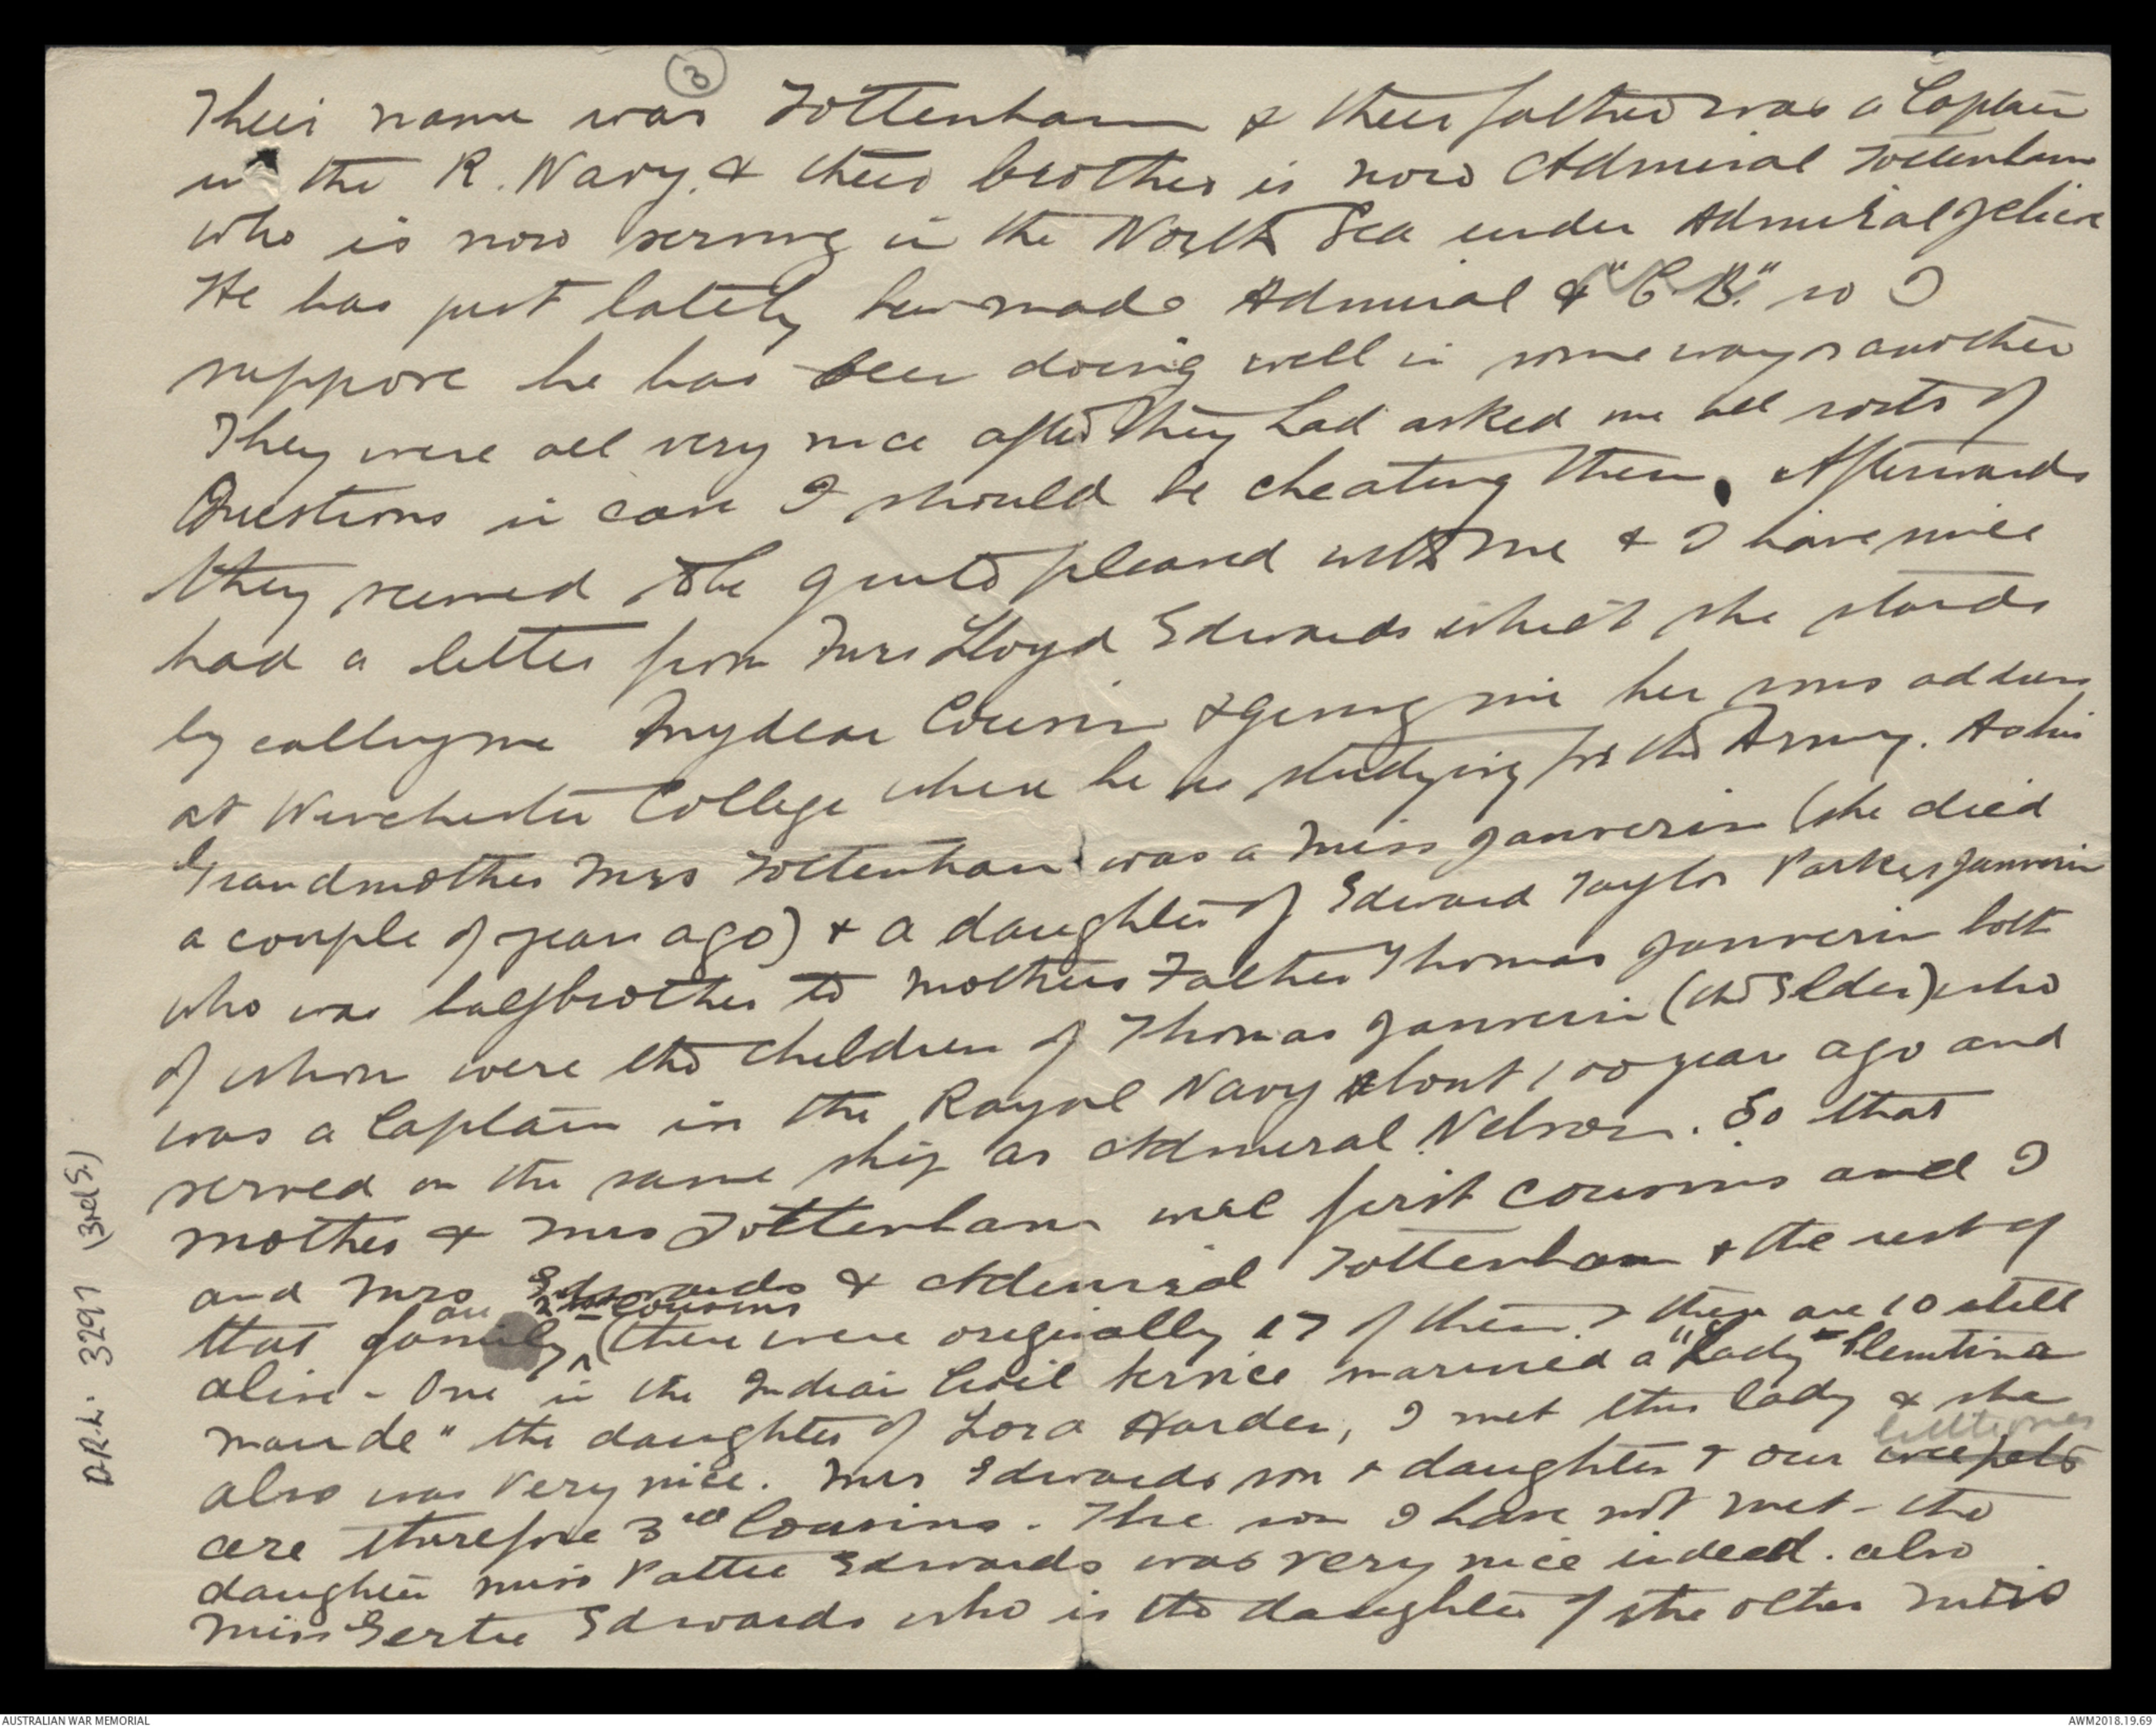 3
Their name was Tottenham & their father was a Captain
in the R. Navy, & their brother is now Admiral Tottenham
who is now serving in the North Sea under Admiral Jelicoe
He has just lately been made Admiral & "C.B." so I
suppose he has been doing well in some way or another
They were all very nice after they had asked me all sorts of
Questions in case I should be cheating them. Afterwards
they seemed to be quite pleased with me & I have since
had a letter from Mrs Lloyd Edwards which she starts
by calling me My dear Cousin & giving me her sons address
at Winchester College where he is studying for the Army. As his
Grandmother Mrs Tottenham was a Miss Janverin (she died
a couple of years ago) & a daughter of Edward Taylor Parker Janverin
who was halfbrother to mothers Father Thomas Janverin both
of whom were the children of Thomas Janverin (the Elder) who
was a Captain in the Royal Navy about 100 year ago and
served on the same ship as Admiral Nelson. So that
mother & Mrs Tottenham were first cousins and I
and Mrs Edwards & Admiral Tottenham & the rest of
are 2nd cousins
that family (there were originally 17 of them & there are 10 still
alive - One in the Indian Civil Service married a "Lady Clemtina
maude" the daughter of Lord Harden, I met this lady & she
also was very nice. Mrs Edwards son & daughter & our
little ones
are therefore 3rd Cousins. The son I have not met - the
daughter Miss Pattie Edwards was very nice indeed. also
Miss Gertie Edwards who is the daughter of the other Miss
D.R.L. 3291 (3rd S.)
AUSTRALIAN WAR MEMORIAL
AWM2018.19.69